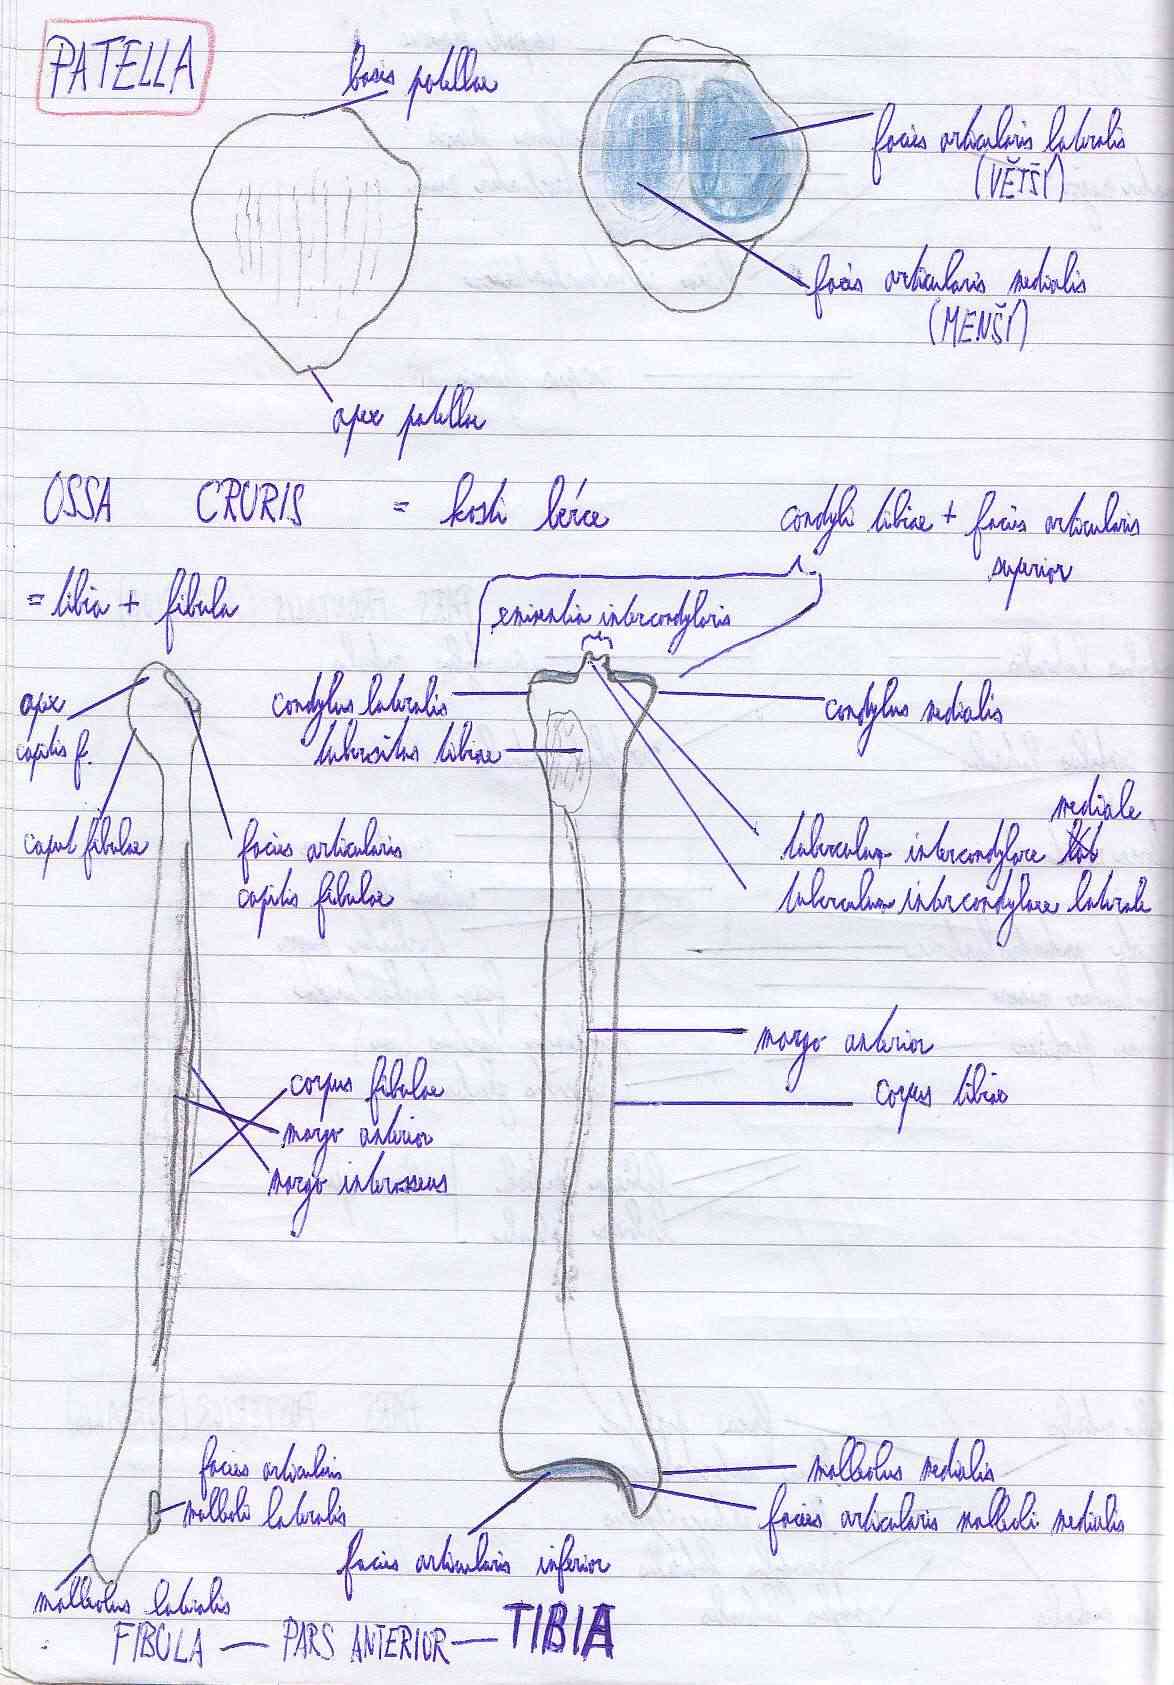 PATELLA
basis patellae
facies articularis lateralis
(VĚTŠÍ)
facies articularis medialis
(MENŠÍ)
apex patellae
OSSA CRURIS = kosti bérce
= tibia + fibula
condyli tibiae + facies articularis
superior
eminentia intercondylaris
apex
capitis f.
caput fibulae
facies articularis
capitis fibulae
condylus lateralis
tuberositas tibiae
condylus medialis
mediale
tuberculum intercondylare
tuberculum intercondylare laterale
margo anterior
corpus tibiae
corpus fibulae
margo anterior
margo interosseus
facies articularis
malleoli lateralis
malleolus lateralis
malleolus medialis
facies articularis malleoli medialis
facies articularis inferior
FIBULA — PARS ANTERIOR — TIBIA